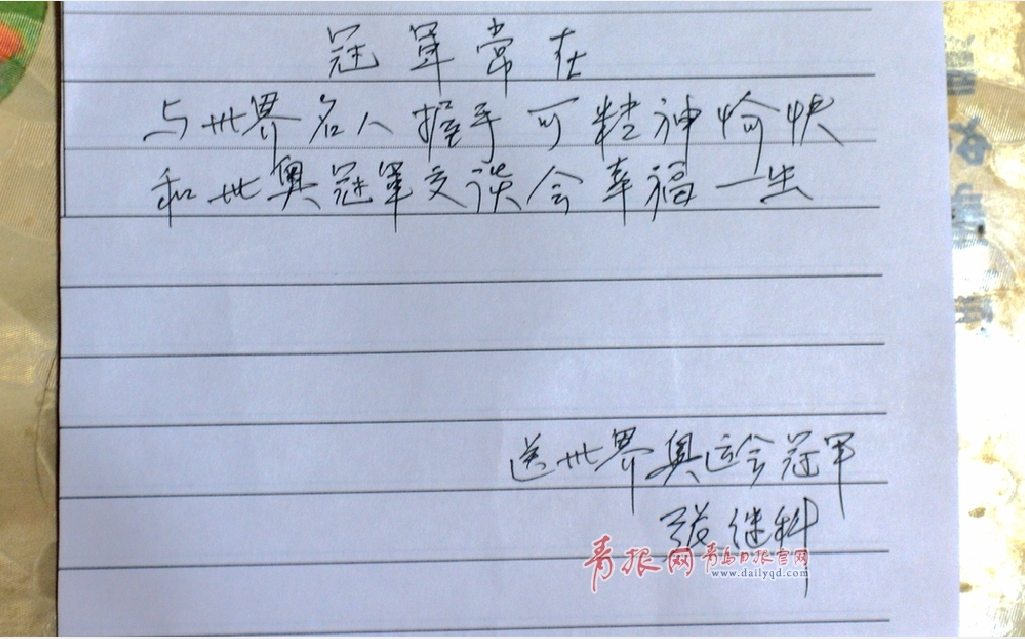 冠军常在
与世界名人握手可精神愉快
和世奥冠军交谈会幸福一生
送世界奥运会冠军
张继科
青报网 青岛日报官网
www.dailyqd.com